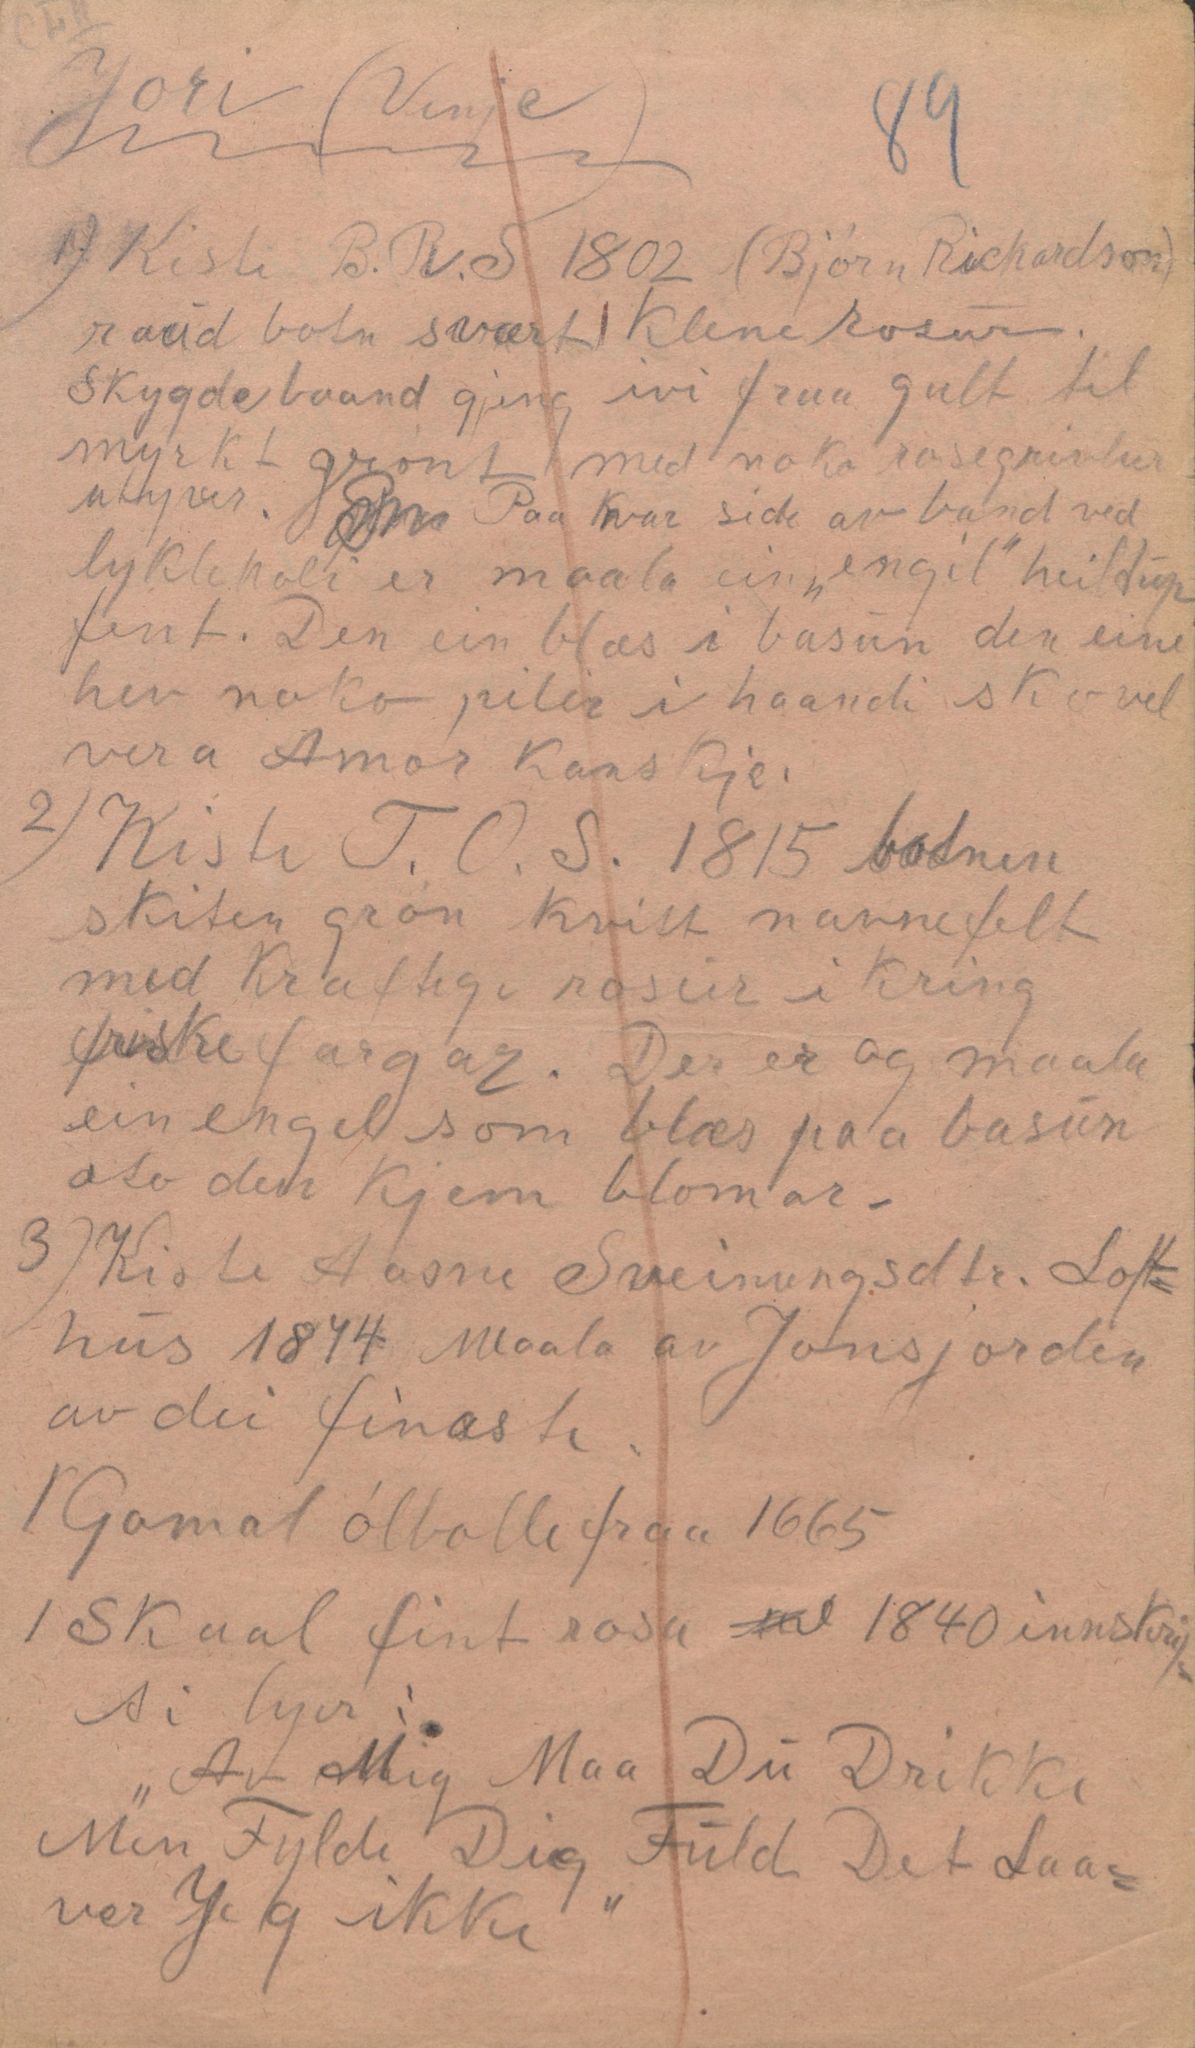 Jori (Vinje)
89
1) Kiste B.R.S 1802 (Bjórn Rickardson)
raud botn svært klene rosur.
Skygdebaand gjeng ivi fraa gult til
myrkt grónt med noko rosegrivlur
utyver. Paa kvar side av band ved
lykleholi er maala ein „engil" heiltup
fent. Den ein blæs i basun den eine
hev noko pilir i haandi sko vel
vera Amor kanskje.
2) Kiste T. O. S. 1815 botnen
skiten grón kvitt navnefelt
med kraftige rosur ikring
friske fargar. Der er og maala
ein engel som blæs paa basun
oto den kjem blomar-
3) Kiste Aasne Sveinungsdtr. Loft=
hus 1844 Maala av Jonsjorden
av dei finaste.
1 Gamal ólbolle fraa 1665
1 Skaal fint rosa 1840 innskrif=
ti lyer:
„Av Mig Maa Du Drikke
Men Fylde Dig Fuld Det Laa=
ver Jeg ikke"